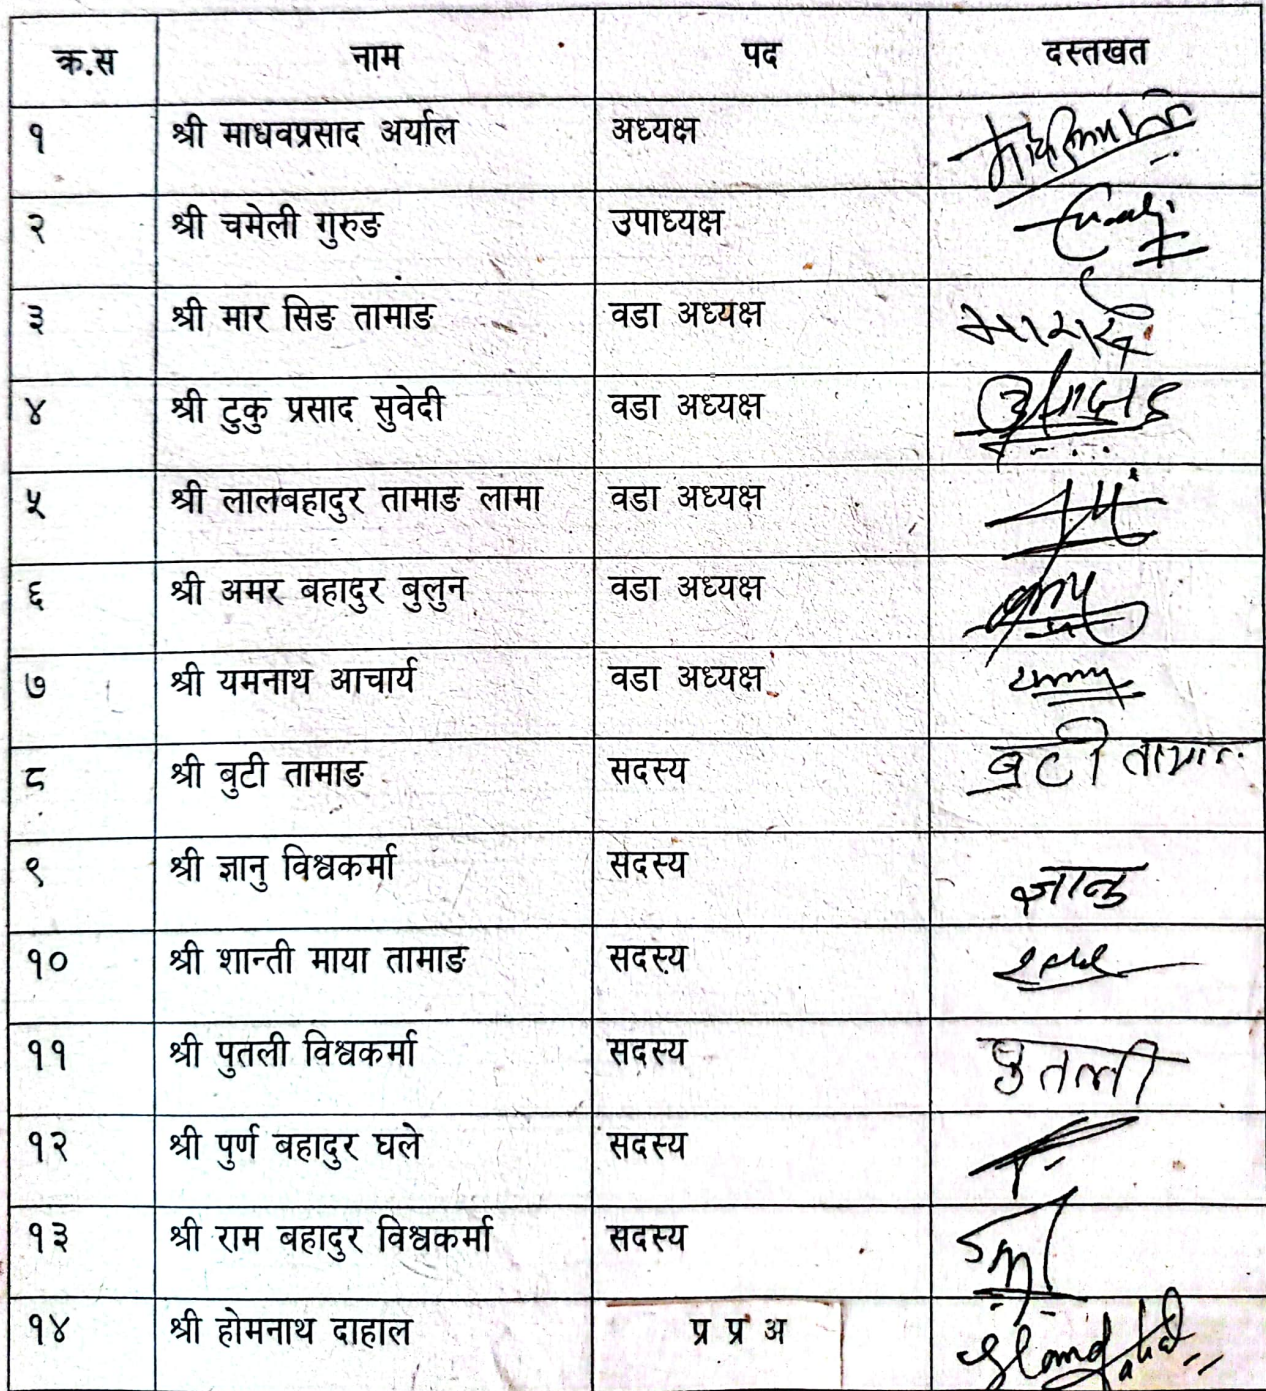 क्र.स नाम पद दस्तखत
१ श्री माधवप्रसाद अर्याल अध्यक्ष
२ श्री चमेली गुरुङ उपाध्यक्ष
३ श्री मार सिङ तामाङ वडा अध्यक्ष
४ श्री टुकु प्रसाद सुवेदी वडा अध्यक्ष
५ श्री लालबहादुर तामाङ लामा वडा अध्यक्ष
६ श्री अमर बहादुर बुलुन वडा अध्यक्ष
७ श्री यमनाथ आचार्य वडा अध्यक्ष
८ श्री बुटी तामाङ सदस्य
९ श्री ज्ञानु विश्वकर्मा सदस्य ज्ञानु
१० श्री शान्ती माया तामाङ सदस्य
११ श्री पुतली विश्वकर्मा सदस्य पुतली
१२ श्री पुर्ण बहादुर घले सदस्य
१३ श्री राम बहादुर विश्वकर्मा सदस्य
१४ श्री होमनाथ दाहाल प्र प्र अ